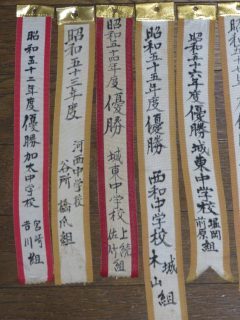 昭和五十二年度優勝 加太中学校 宮崎 吉川 組
昭和五十三年度 河西中学校 谷所 橋爪 組
昭和五十四年度優勝 城東中学校 上続 佐竹 組
昭和五十五年度優勝 西和中学校 城 木山 組
昭和五十六年度優勝 城東中学校 堀岡 前原 組